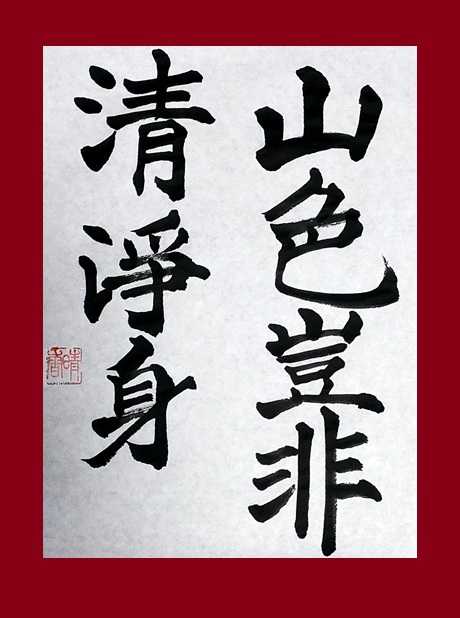 山色豈非
清淨身